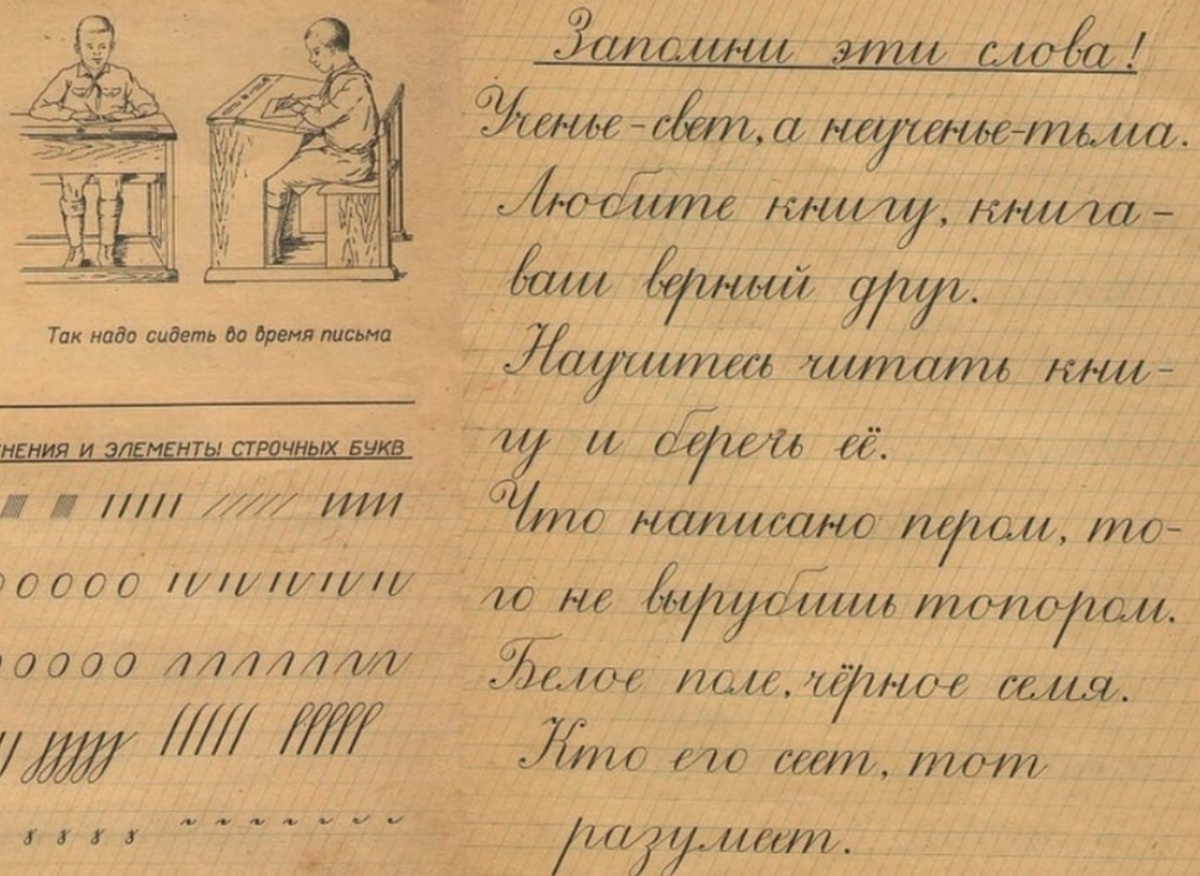 Так надо сидеть во время письма
И ЭЛЕМЕНТЫ СТРОЧНЫХ БУКВ
Запомни эти слова!
Ученье-свет, а неученье-тьма.
Любите книгу, книга-
ваш верный друг.
Научитесь читать кни-
гу и беречь её.
Что написано пером, то-
го не вырубишь топором.
Белое поле, чёрное семя.
Кто его сеет, тот
разумеет.